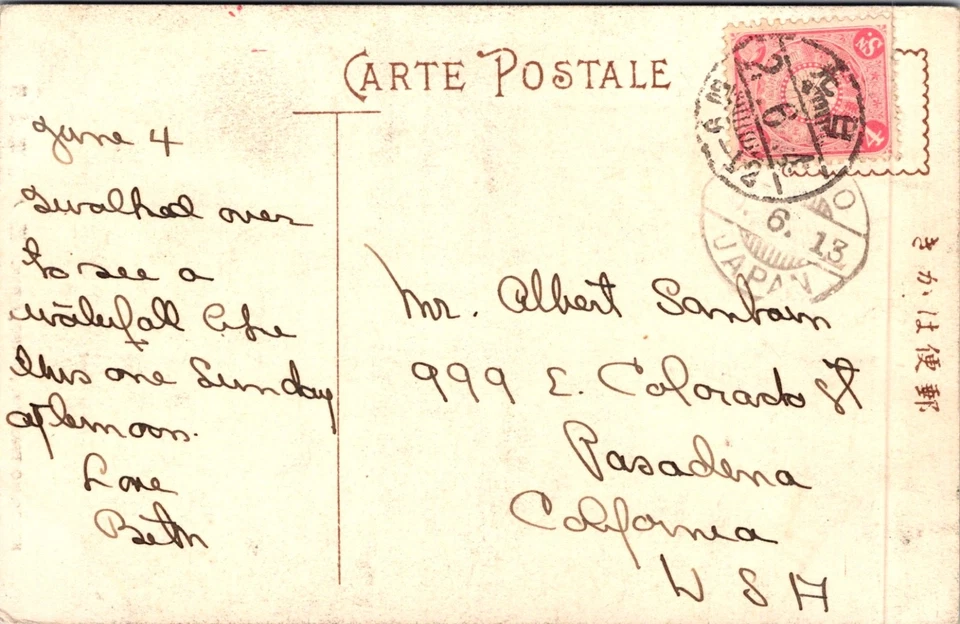 CARTE POSTALE
June 4
I walked over
to see a
waterfall like
this one Sunday
afternoon.
Love
Beth
Mr. Albert
999 E. Colorado St
Pasadena
California
U S A
6. 13
JAPAN
きかは便郵